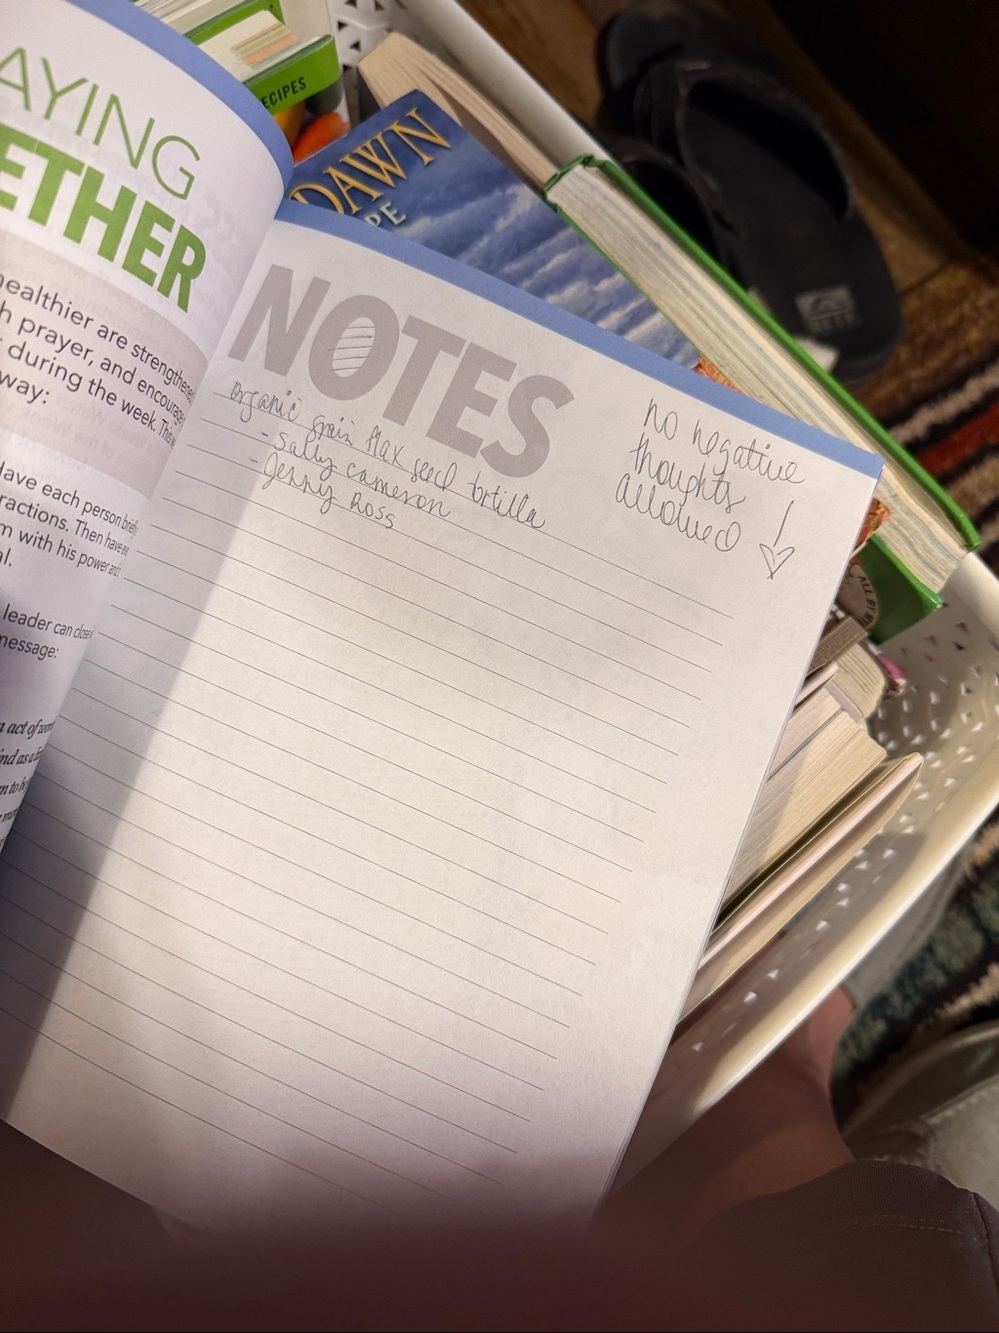 AYING
ETHER
healthier are strengthene
h prayer, and encourage
during the week. This
way:
Have each person brief
ractions. Then have
m with his power and
al.
leader can close
message:
act of
ind as a
m to be
ECIPES
DAWN
PE
NOTES
organic grain flax seed tortilla
- Sally cameron
- Jenny Ross
no negative
thoughts
allowed !
ALL BY
REEF